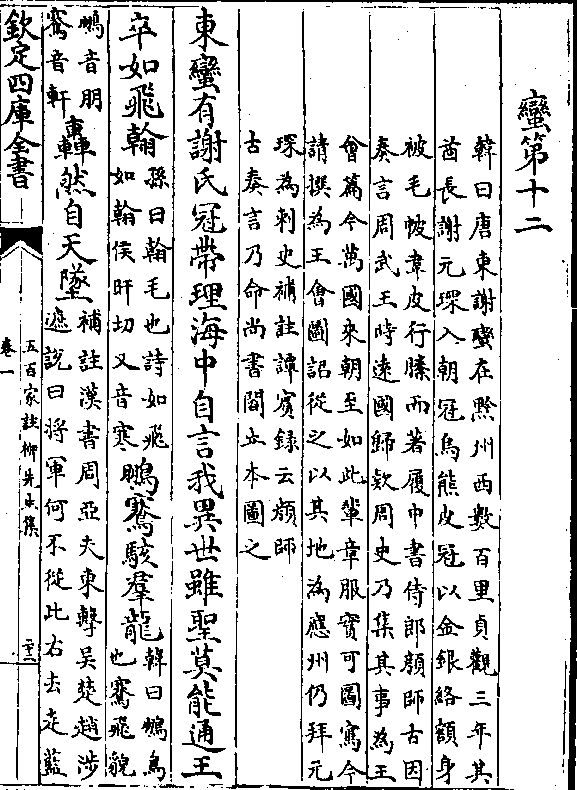 蠻第十二
韓曰唐東謝蠻在黔州西數百里貞觀三年其
酋長謝元琛入朝冠烏熊皮冠以金銀絡額身
被毛帔韋皮行縢而著履中書侍郎顔師古因
奏言周武王時遠國歸欵周史乃集其事為王
㑹篇今萬國來朝至如此輩章服實可圖寫今
請撰為王會圖詔從之以其地為應州仍拜元
琛為刺史補註譚賓録云顔師
古奏言乃命尚書閻立本圖之
東蠻有謝氏冠帶理海中自言我異世雖聖莫能通王
卒如飛翰孫曰翰毛也詩如飛如翰侯旰切又音寒鵬騫駭羣龍韓曰鵬鳥也騫飛貌
鵬音朋騫音軒轟然自天墜補註漢書周亞夫東擊吳楚趙涉遮說曰將軍何不從此右去走藍
欽定四庫全書
五百家註柳先生集
卷一
二十二